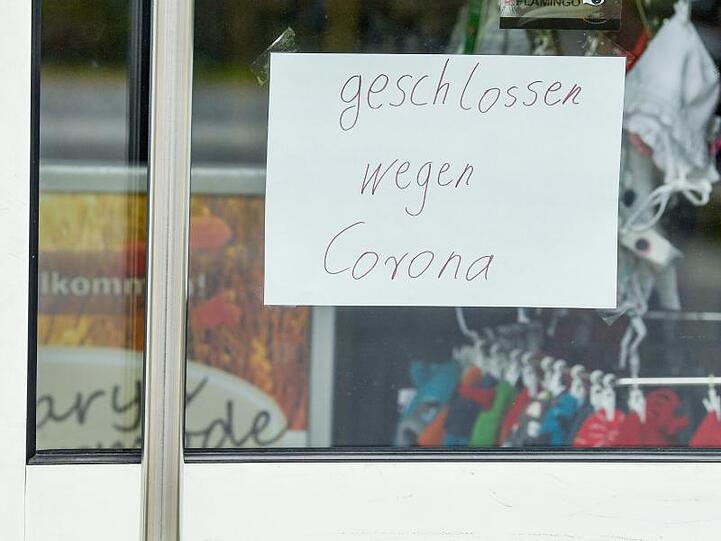 FLAMINGO
geschlossen
wegen
Corona
lkommen!
ary's
mode